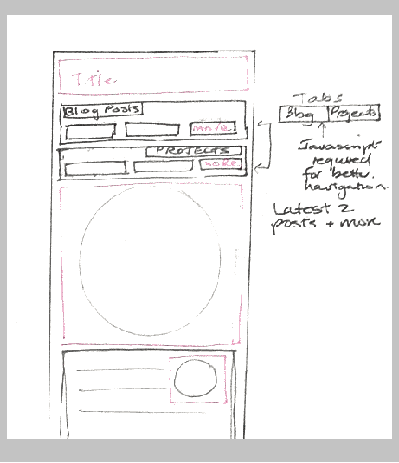 Title
Blog Posts
more
PROJECTS
MORE
Tabs
Blog Projects
Javascript
required
for better
navigation.
Latest 2
posts + more